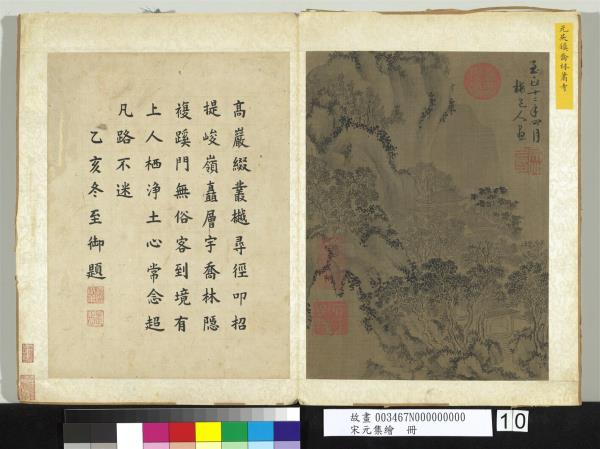 元吳鎮喬林蕭寺
至正十二年四月
梅道人畫
高巖綴叢樾尋徑叩招
提峻嶺矗層宇喬林隱
複蹊門無俗客到境有
上人栖淨土心常念超
凡路不迷
乙亥冬至御題
故畫 003467N000000000
宋元集繪 冊
10